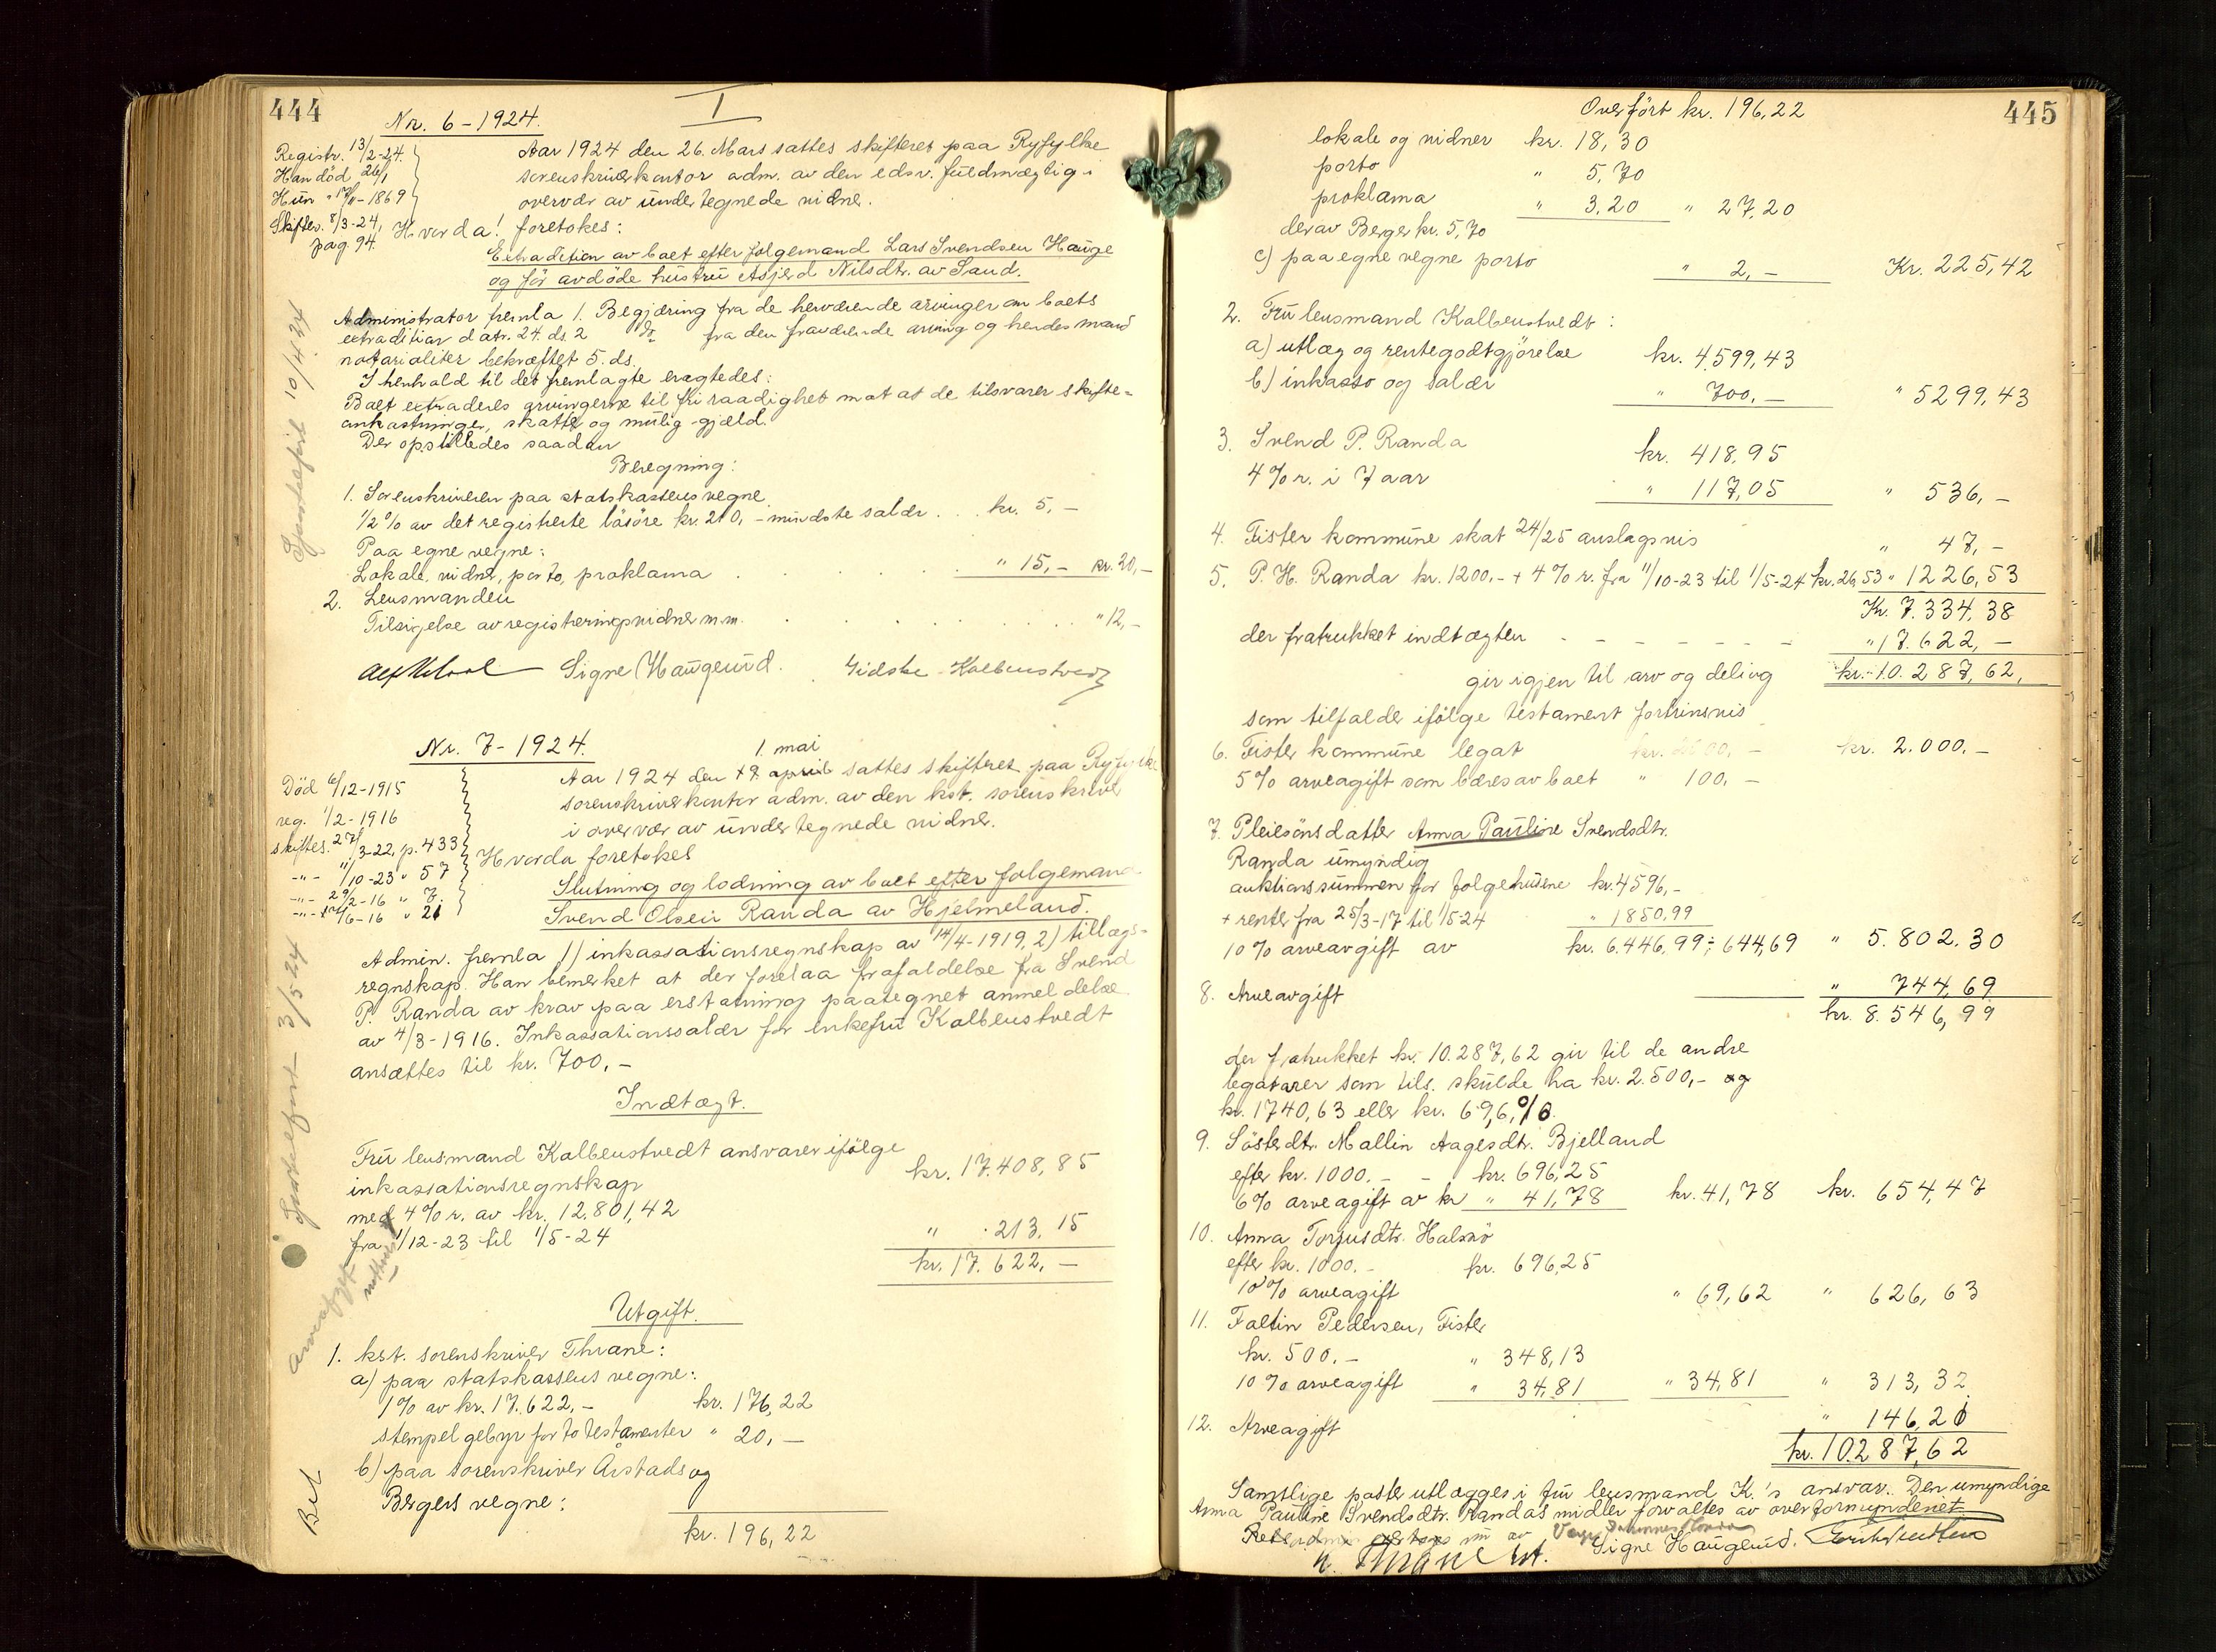 444
Nr. 6 - 1924.
I
Registr. 13/2-24.
Han död 26/1
Hun " 17/11-1869
Skiftes. 8/3-24,
pag. 94.
Aar 1924 den 26. Mars sattes skifteret paa Ryfylke
sorenskriverkontor adm. av den edsv. fuldmægtig i
overvær av undertegnede vidner.
Hvorda! foretokes:
Extradition av boet efter folgemand Lars Svendsen Hauge
og för avdöde hustru Asjerd Nilsdtr. av Sand.
Administrator fremla 1. Begjæring fra de herværende arvinger om boets
extradition datr. 24. ds. 2 do fra den fraværende arving og hendes mand
notarialiter bekræftet 5. ds.
I henhold til det fremlagte eragtedes:
Boet extraderes arvingerne til fri raadighet mot at de tilsvarer skifte-
omkostninger, skatter og mulig gjæld.
Der opstilledes saadan
Beregning:
1. Sorenskriveren paa statskassens vegne
1/2 % av det registrerte lösöre kr. 210, - mindste salær . . . kr. 5, -
Paa egne vegne:
Lokale, vidner, porto, proklama . . . . . " 15, - kr. 20, -
2. Lensmanden
Tilsigelse av registreringsvidner m.m. . . . . . . . . " 12, -
Signe Haugerud. Gidske Kolbenstvedt
Gjenpartsført 10/4 24
Nr. 7 - 1924.
Död 6/12-1915
reg. 1/2-1916
skiftes. 27/3-22, p. 433
-"- 11/10-23 " 57
-"- 29/2-16 " 7.
-"- 17/6-16 " 21
1. mai
Aar 1924 den 19. april sattes skifteret paa Ryfylke
sorenskriverkontor adm. av den kst. sorenskriver
i overvær av undertegnede vidner.
Hvorda foretokes
Slutning og lodning av boet efter folgemand
Svend Olsen Randa av Hjelmeland.
Admin. fremla 1) inkassationsregnskap av 14/4-1919, 2) tillægs-
regnskap. Han bemerket at der forelaa frafaldelse fra Svend
P. Randa av krav paa erstatning paategnet anmeldelse
av 4/3-1916. Inkassationssalær for enkefru Kolbenstvedt
ansættes til kr. 700, -
Indtægt.
Fru lensmand Kolbenstvedt ansvarer ifölge
inkassationsregnskap kr. 17.408,85
med 4 % r. av kr. 12.801,42
fra 1/12-23 til 1/5-24 " 213,15
kr. 17.622, -
Utgift.
1. kst. sorenskriver Thrane:
a) paa statskassens vegne:
1% av kr. 17.622, - kr. 176,22
stempelgebyr for to testamenter " 20, -
b) paa sorenskriver Årstads og
Bergers vegne:
kr. 196,22
3/5 24
Arveavgift
Bet
445
Overfört kr. 196,22
lokale og vidner kr. 18,30
porto " 5,70
proklama " 3,20 " 27,20
derav Berger kr. 5,70
c) paa egne vegne porto " 2, - Kr. 225,42
2. Fru lensmand Kolbenstvedt:
a) utlæg og rentegodtgjörelse kr. 4.599,43
b) inkasso og salær " 700, - " 5299,43
3. Svend P. Randa kr. 418,95
4 % r. i 7 aar " 117,05 " 536, -
4. Fister kommune skat 24/25 anslagsvis " 47, -
5. P. H. Randa kr. 1200, - + 4 % r. fra 11/10-23 til 1/5-24 kr. 26,53 " 1226,53
Kr. 7.334,38
der fratrukket indtægten - - - - - - " 17.622, -
gir igjen til arv og deling kr. 10.287,62,
som tilfalder ifölge testament fortrinsvis
6. Fister kommune legat kr. 2.000, -
5 % arveagift som bæres av boet " 100, -
7. Pleiesönsdatter Anna Pauline Svendsdtr.
Randa umyndig
auktionssummen for folgehusene kr. 4596, -
+ renter fra 25/3-17 til 1/5-24 " 1850,99
10 % arveavgift av kr. 6.446,99 ÷ 644,69 " 5.802.30
8. Arveavgift " 744,69
kr. 8.546,99
der fratrukket kr. 10.287,62 gir til de andre
legatarer som tils. skulde ha kr. 2.500, - og
kr. 1740,63 eller kr. 69,6, %.
9. Sösterdtr. Mallin Aagesdtr. Bjelland
efter kr. 1000. - - kr. 696,25
6 % arveagift av kr " 41,78 kr. 41,78 kr. 654,47
10. Anna Torjusdtr. Halsnö
efter kr. 1000. - kr. 696,25
10 % arveagift " 69,62 " 626,63
11. Faltin Pedersen, Fister
kr. 500. - " 348,13
10 % arveagift " 34,81 " 34,81 " 313,32
12. Arveagift " 146,20
kr. 10.287,62
Samtlige poster utlægges i fru lensmand K.'s ansvar. Den umyndige
Anna Pauline Svendsdtr. Randas midler forvaltes av overformynderiet
Signe Haugerud.
Thrane kst.